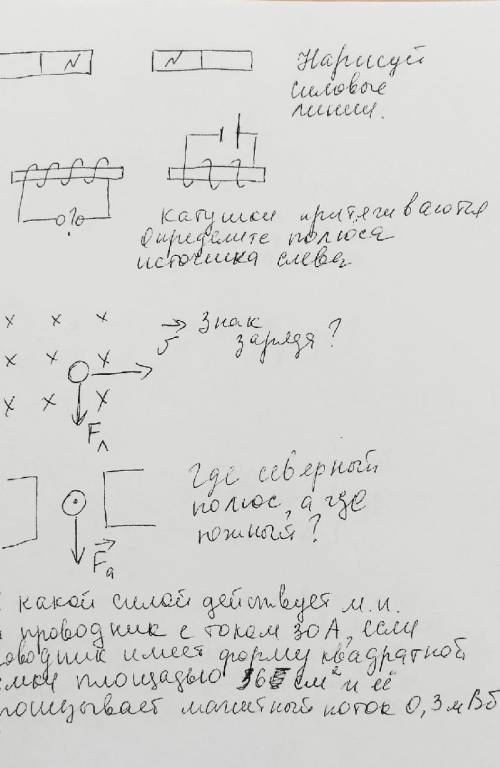 N N
Нарисуй
силовые
линии.
катушки притягиваются
Определите полюса
источника слева
x x x
x x x
x x x
υ
Знак
заряда ?
Fл
Где северный
полюс, а где
южный ?
Fa
какой силой действует м.п.
проводник с током 30 А, если
оводник имеет форму квадратной
площадью см² и её
ронизывает магнитный поток 0,3 мВб